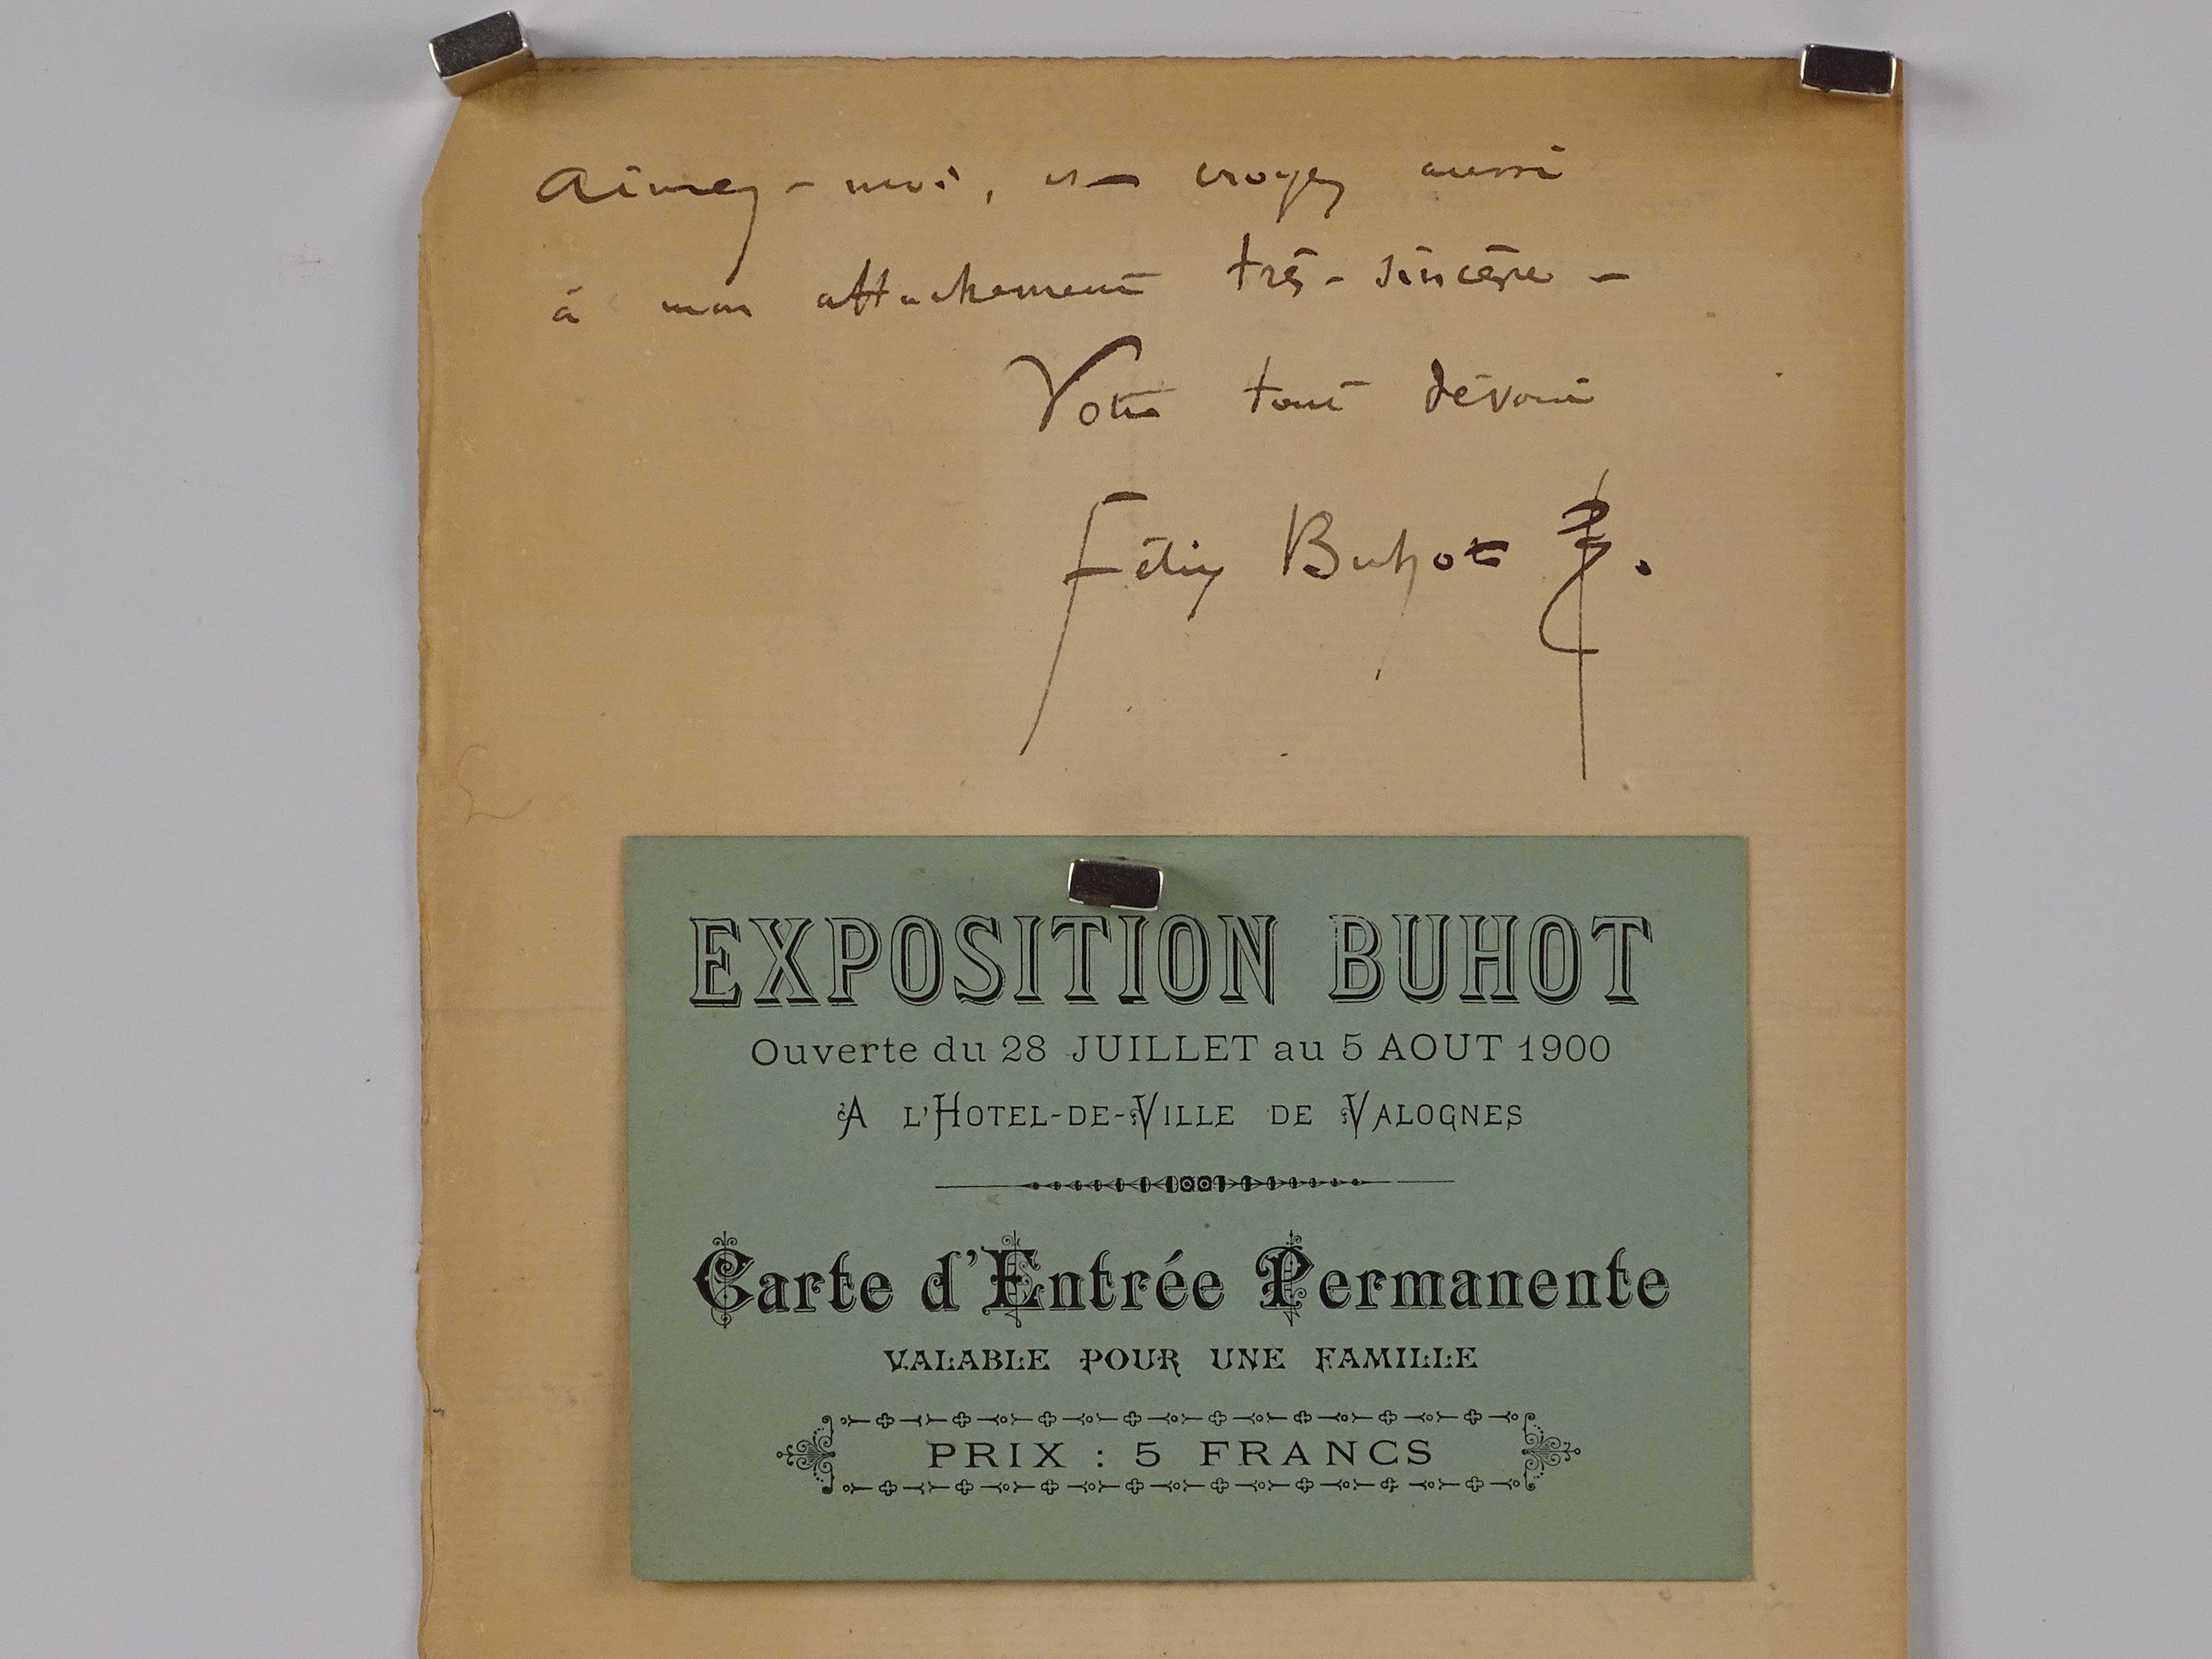 Aimez-moi, et croyez aussi
à mon attachement très-sincère -
Votre tout dévoué
Félix Buhot
EXPOSITION BUHOT
Ouverte du 28 JUILLET au 5 AOUT 1900
A L'HOTEL-DE-VILLE DE VALOGNES
Carte d'Entrée Permanente
VALABLE POUR UNE FAMILLE
PRIX : 5 FRANCS